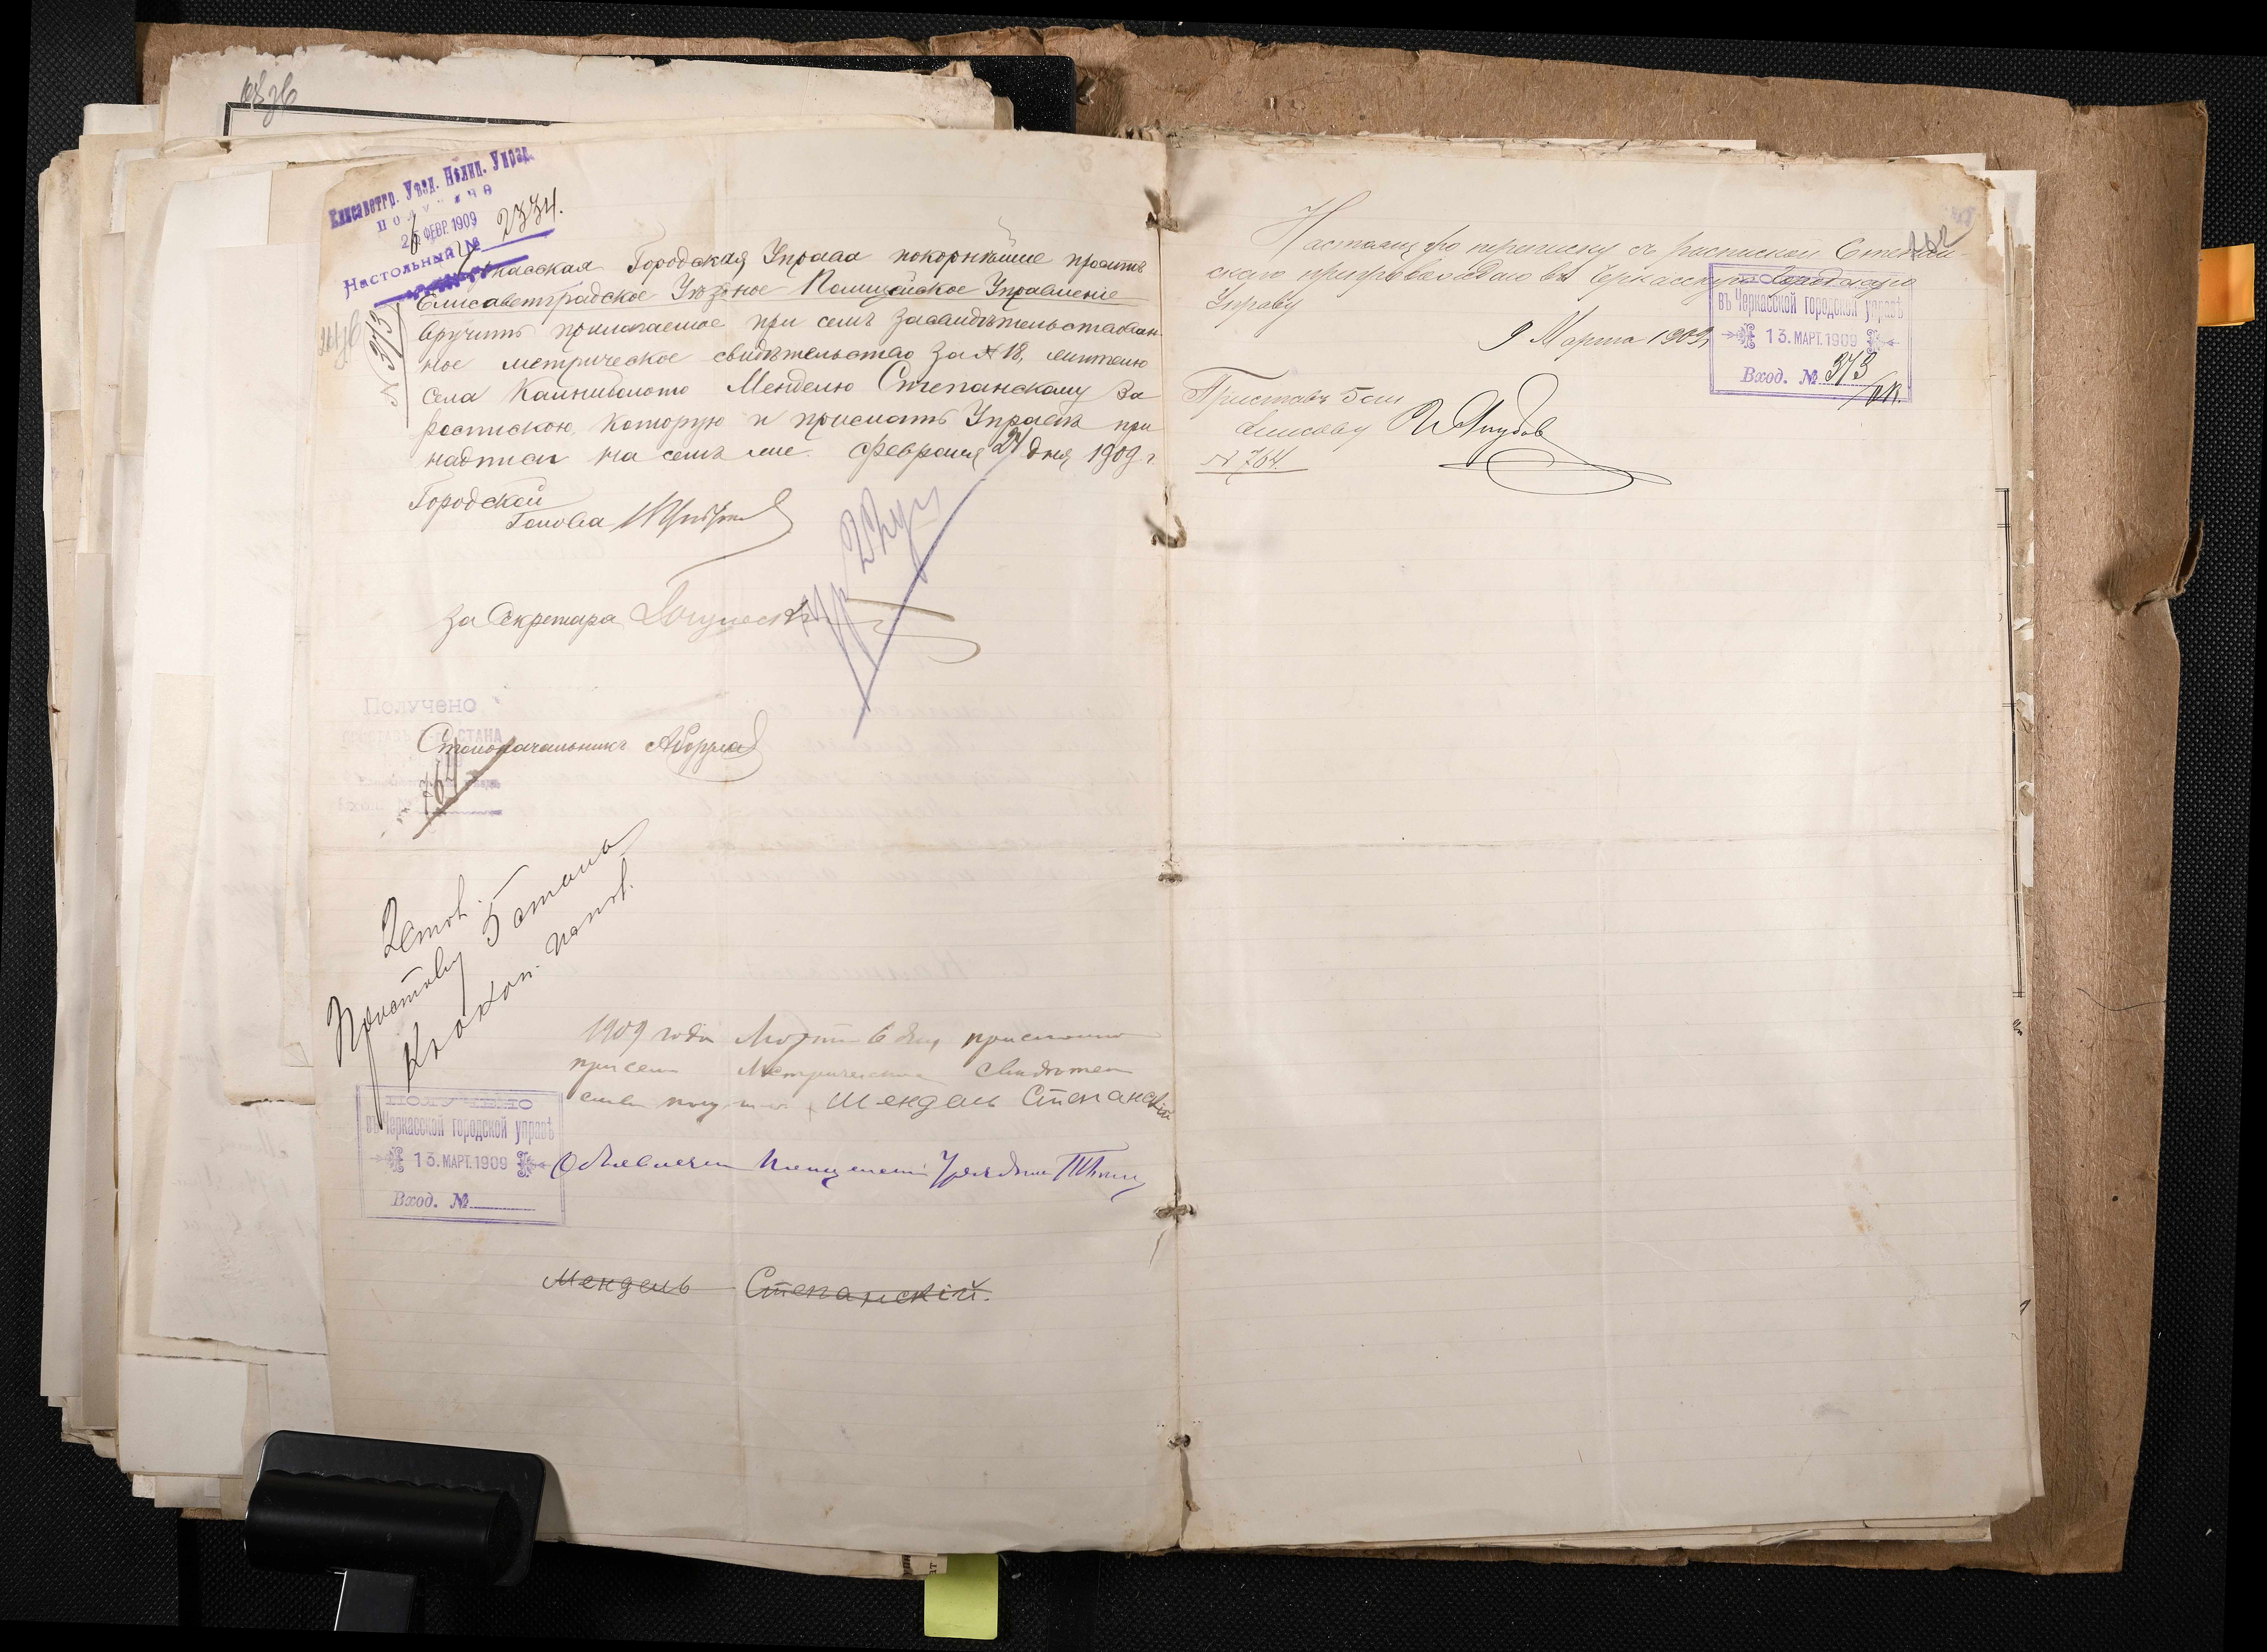 Елисаветгр. Уѣзд. Полиц. Управ.
Получено
26 ФЕВР. 1909
Настольный № 2234.
Черкасская Городская Управа покорнѣйше проситъ
Елисаветградское Уѣздное Полицейское Управленіе
вручить прилагаемое при семъ засвидѣтельствован-
ное метрическое свидѣтельство за № 18, жителю
села Каниболото Менделю Степанскому за
роспискою, которую и прислать Управѣ при
надписи на семъ же. Февраля 24 дня 1909 г.
№ 313
Городской
Голова
За Секретаря
Получено
СТАНА
Столоначальникъ
764
2 стол.
Приставу 5 стана
1909 года Марта 6 дня прислано
при семъ Метрическое свидѣтел
ство получилъ Мендель Степанскій
ПОЛУЧЕНО
въ Черкасской городской управѣ
13. МАРТ. 1909
Вход. №
Объявлялъ Полицейскій Урядникъ
Мендель Степанскій.
Настоящую переписку съ роспиской Степан-
скаго препровождаю въ Черкасскую Городскую
Управу
9 Марта 1909
ПОЛУЧЕНО
въ Черкасской городской управѣ
13. МАРТ. 1909
Вход. № 373
Приставъ 5 ст.
Елисав. у
№ 764.